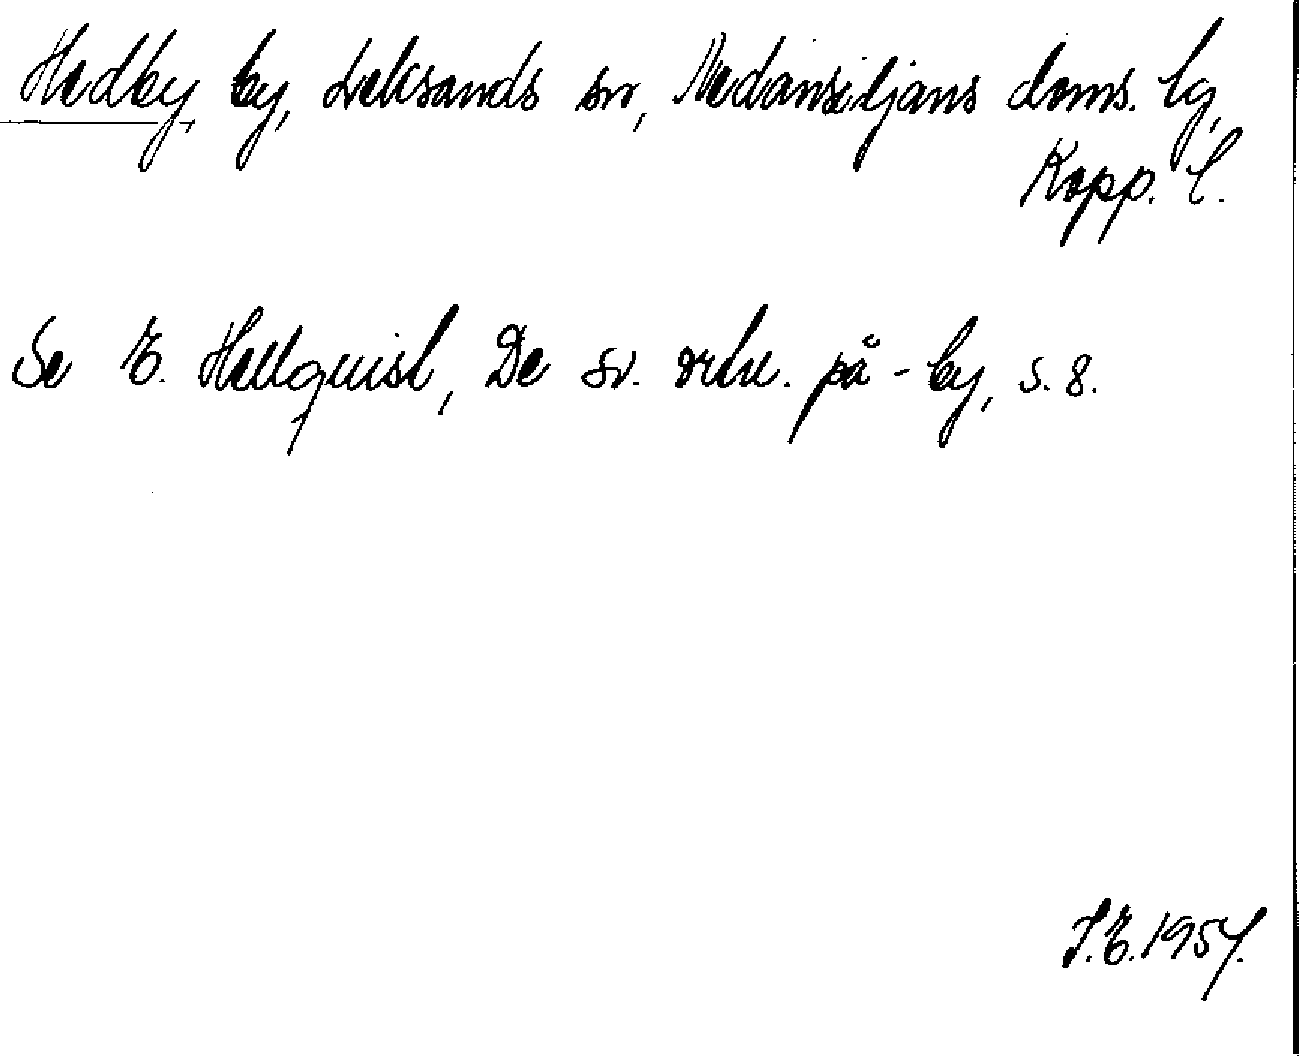 Hedby, by, Leksands sn, Nedansiljans doms. lg,
Kopp. l.
Se E. Hellquist, De sv. ortn. på -by, s. 8.
J.E. 1957.